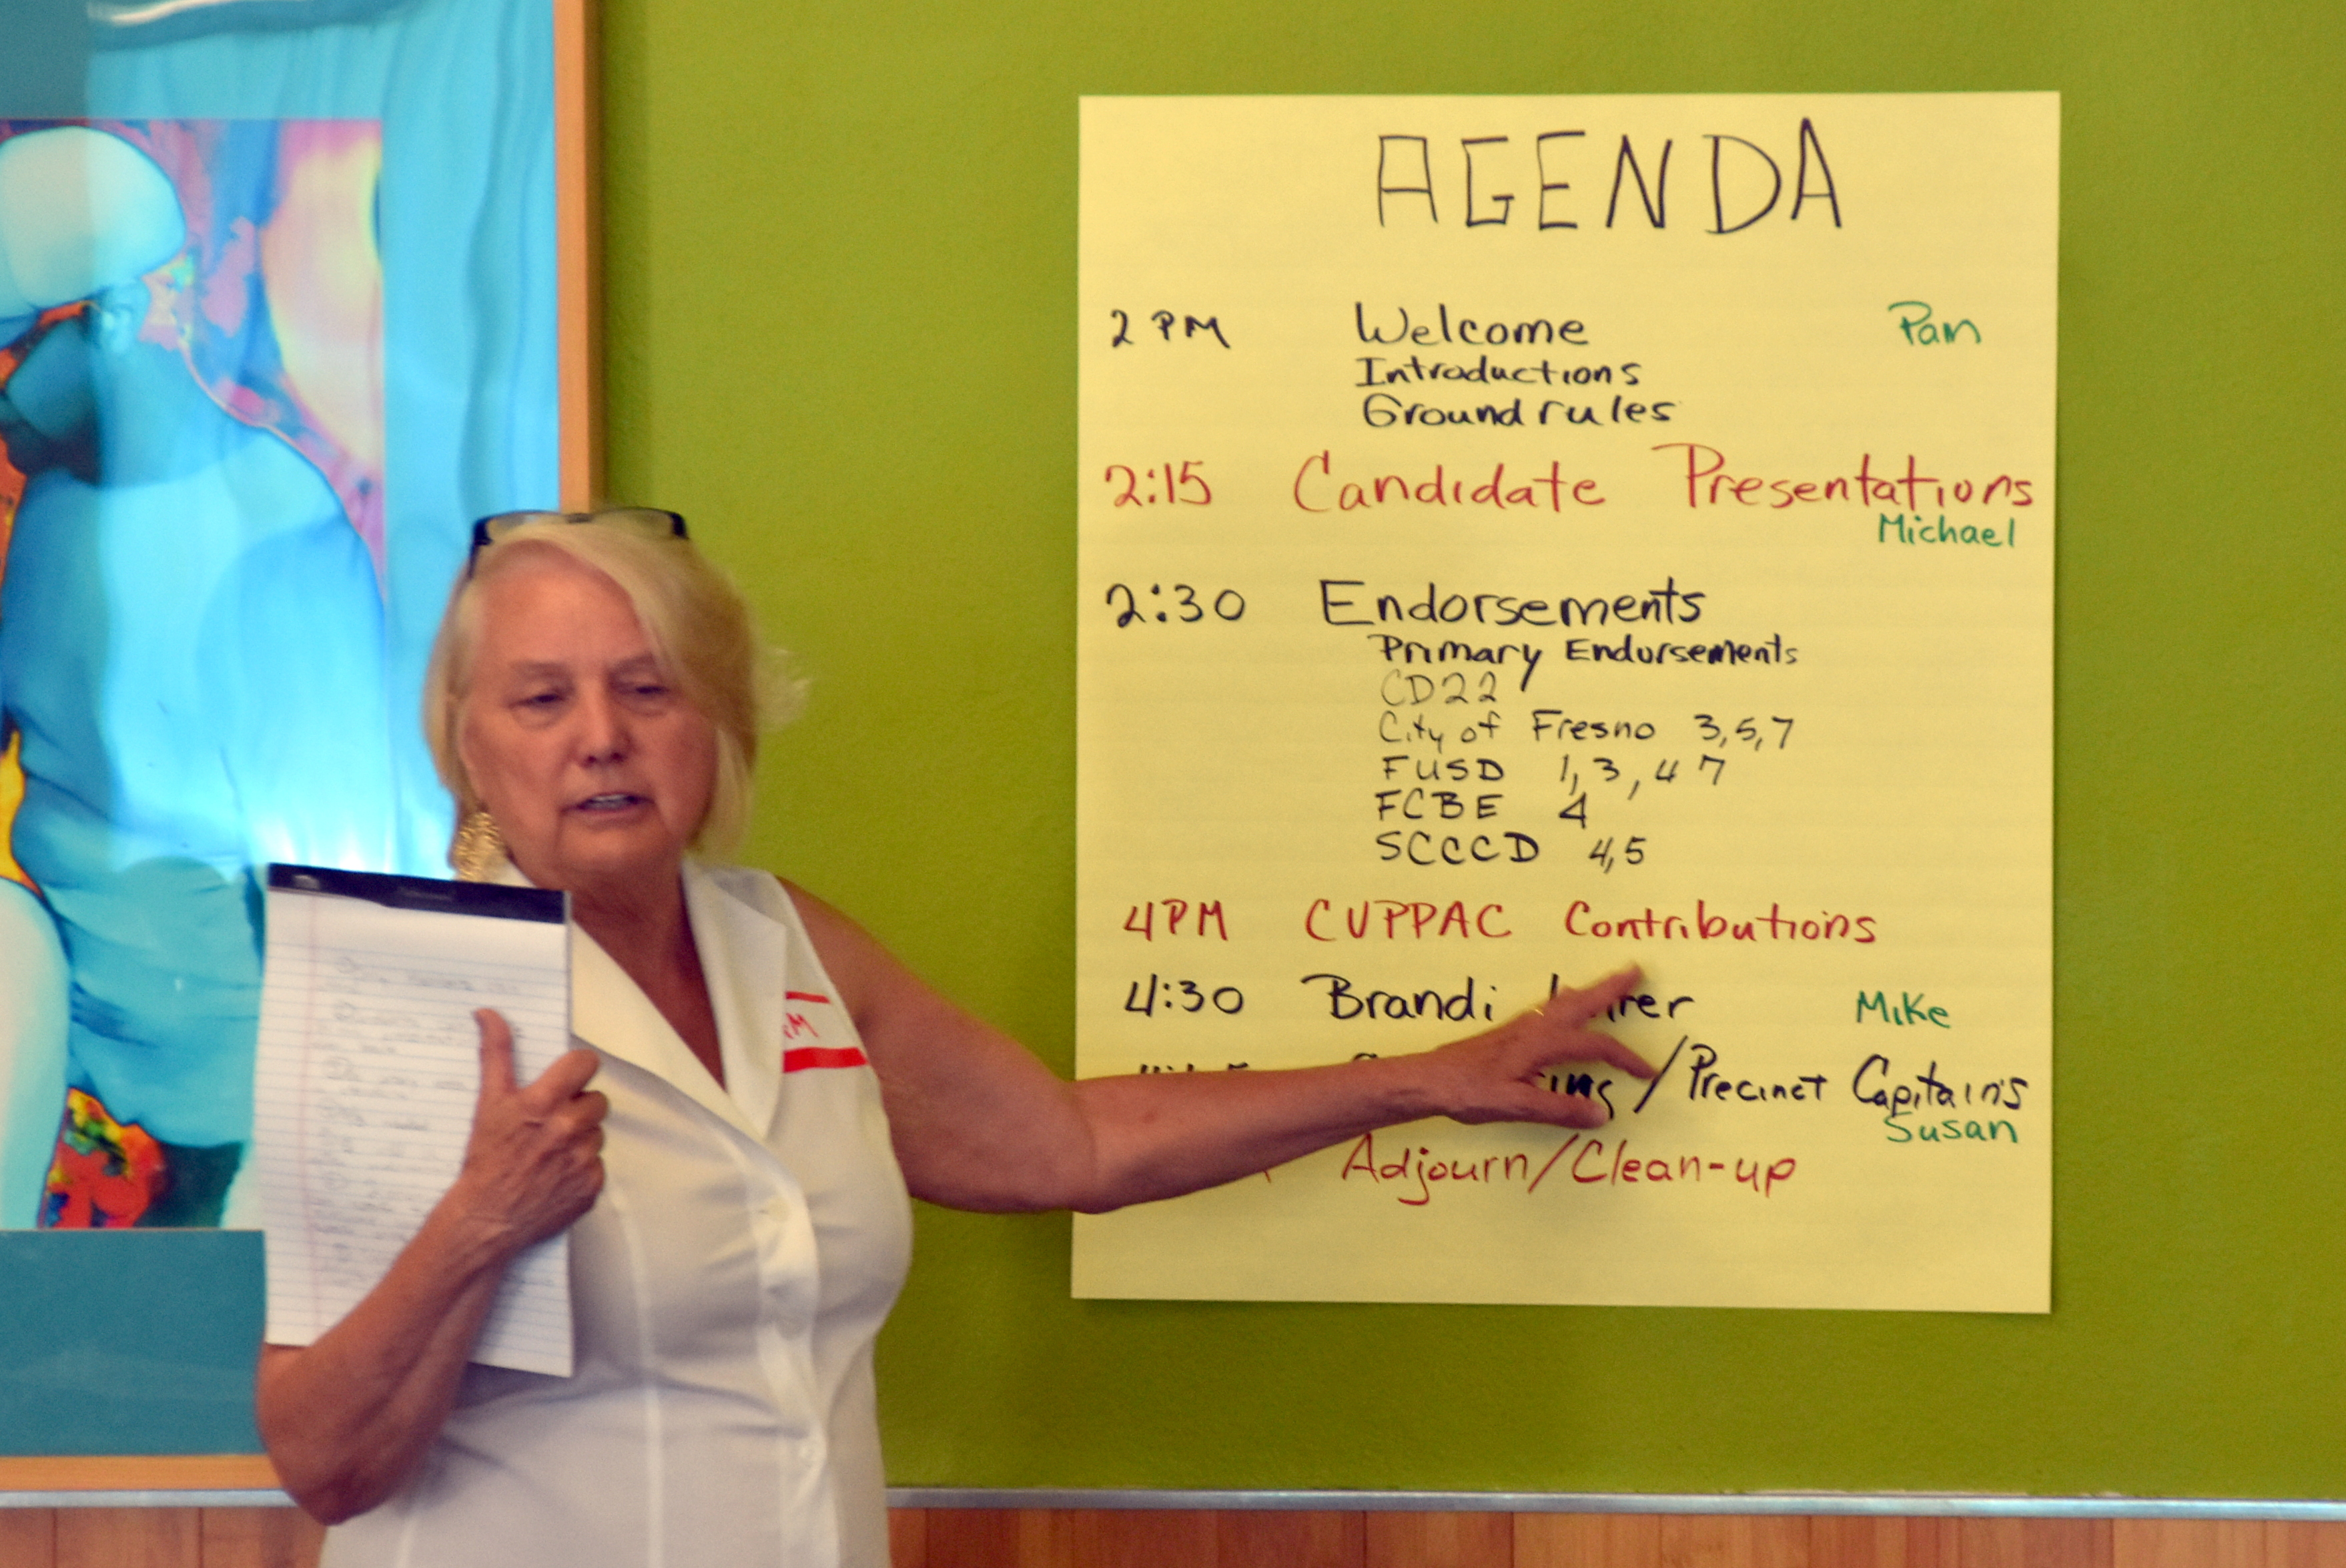 AGENDA
2 PM Welcome Pam
Introductions
Ground rules
2:15 Candidate Presentations
Michael
2:30 Endorsements
Primary Endorsements
CD22
City of Fresno 3,5,7
FUSD 1,3,4 7
FCBE 4
SCCCD 4,5
4PM CVPPAC Contributions
4:30 Brandi Mike
/Precinct Captains
Susan
Adjourn/Clean-up